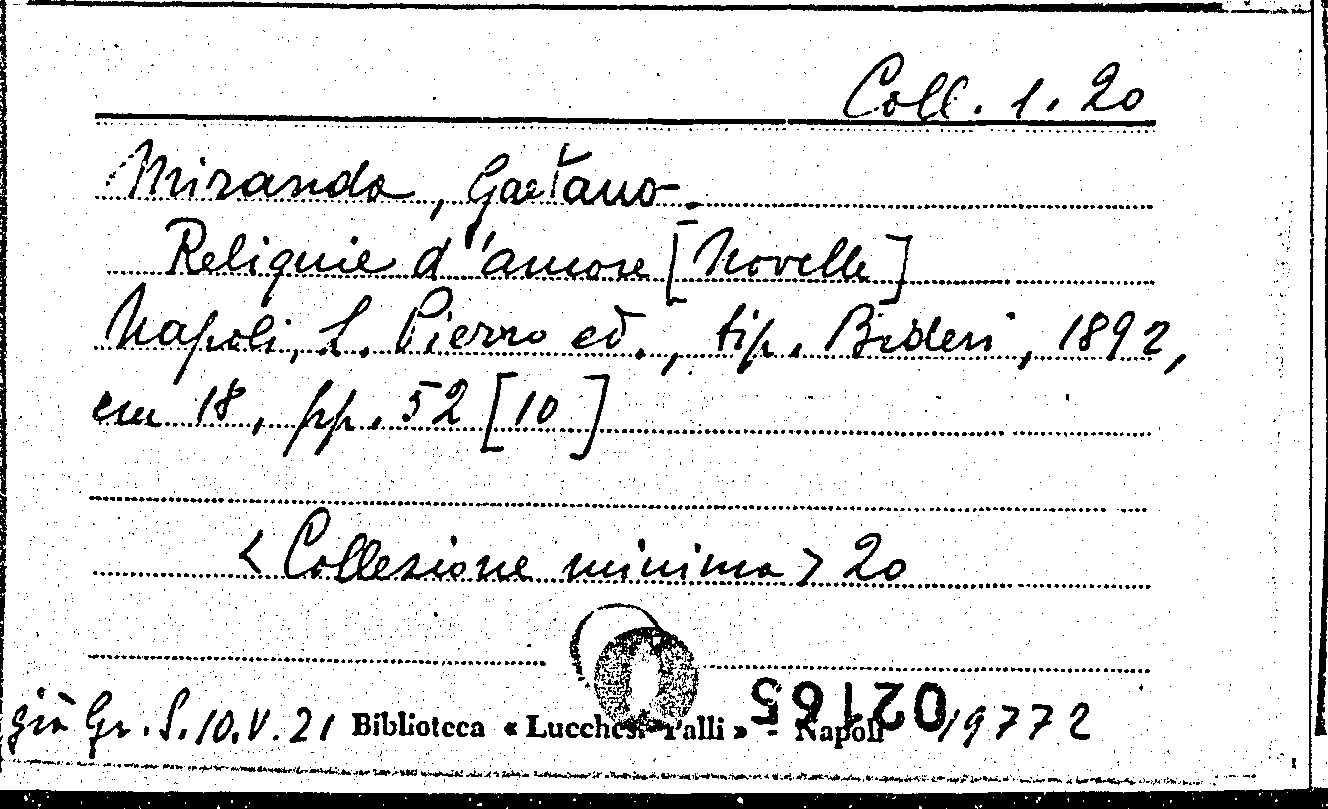 Coll. 1. 20
Miranda, Gaetano.
Reliquie d'amore [Novelle]
Napoli, L. Pierro ed., tip. Bideri, 1892,
cm 18, pp. 52 [10]
< Collezione minima > 20
già Gr. S. 10. V. 21 Biblioteca « Lucchesi Palli » - Napoli 19772